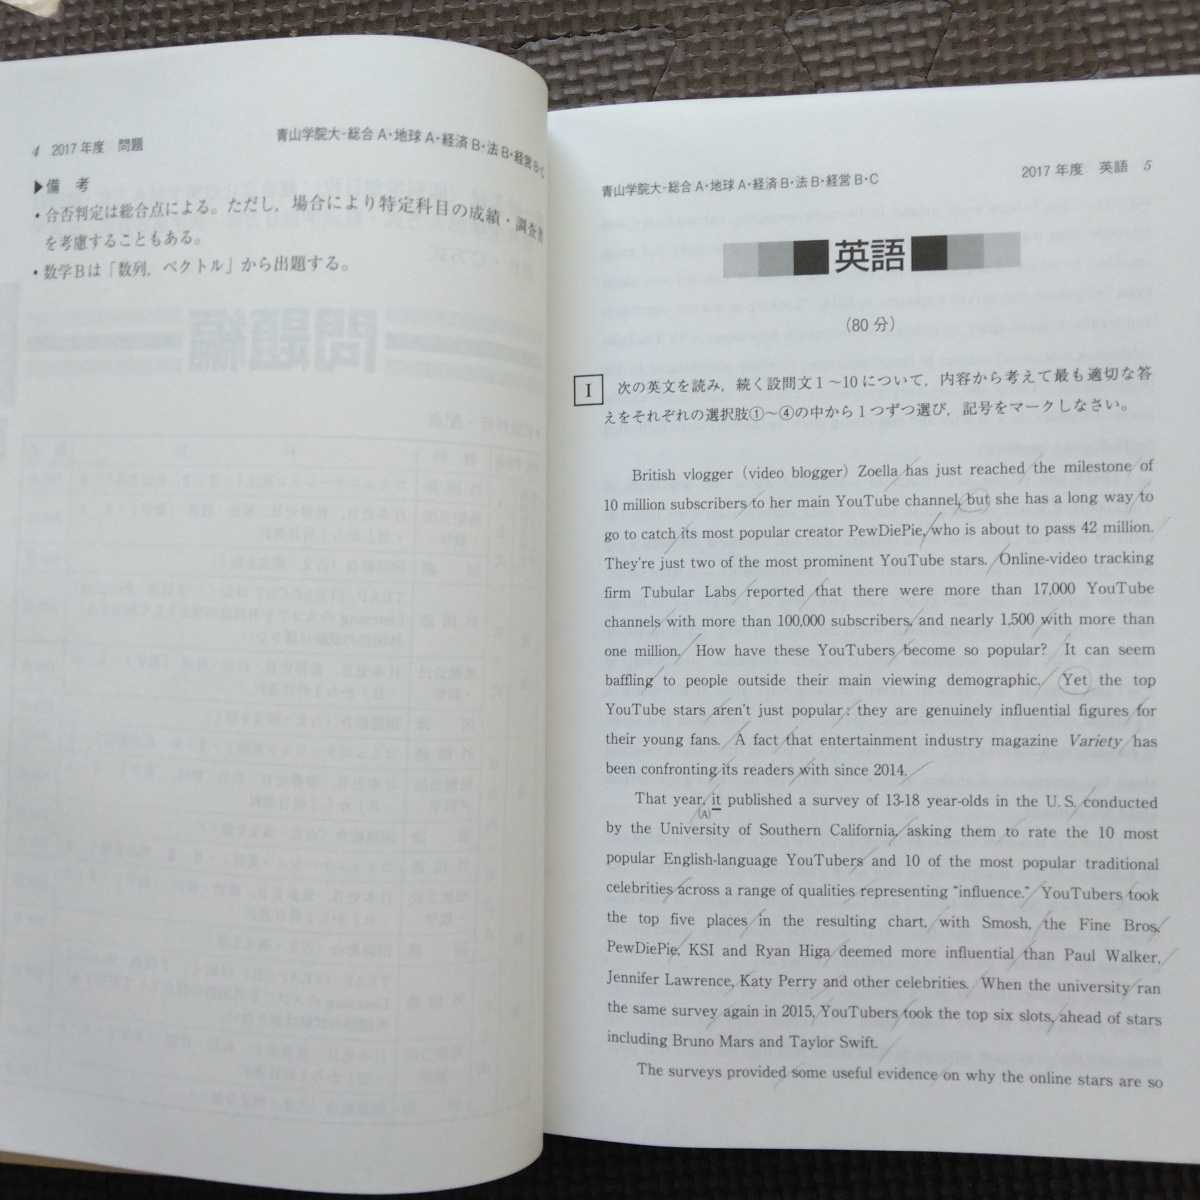 4 2017年度 問題
青山学院大-総合A・地球A・経済B・法B・経営B・C
▶備 考
・合否判定は総合点による。ただし，場合により特定科目の成績・調査書
を考慮することもある。
・数学Bは「数列，ベクトル」から出題する。
青山学院大-総合A・地球A・経済B・法B・経営B・C
2017年度 英語 5
英語
（80分）
I 次の英文を読み，続く設問文1～10について，内容から考えて最も適切な答
えをそれぞれの選択肢①～④の中から1つずつ選び，記号をマークしなさい。
British vlogger (video blogger) Zoella has just reached the milestone of
10 million subscribers to her main YouTube channel, but she has a long way to
go to catch its most popular creator PewDiePie, who is about to pass 42 million.
They're just two of the most prominent YouTube stars. Online-video tracking
firm Tubular Labs reported that there were more than 17,000 YouTube
channels with more than 100,000 subscribers, and nearly 1,500 with more than
one million. How have these YouTubers become so popular? It can seem
baffling to people outside their main viewing demographic. Yet the top
YouTube stars aren't just popular: they are genuinely influential figures for
their young fans. A fact that entertainment industry magazine Variety has
been confronting its readers with since 2014.
That year, it published a survey of 13-18 year-olds in the U.S. conducted
(A)
by the University of Southern California, asking them to rate the 10 most
popular English-language YouTubers and 10 of the most popular traditional
celebrities across a range of qualities representing "influence." YouTubers took
the top five places in the resulting chart, with Smosh, the Fine Bros,
PewDiePie, KSI and Ryan Higa deemed more influential than Paul Walker,
Jennifer Lawrence, Katy Perry and other celebrities. When the university ran
the same survey again in 2015, YouTubers took the top six slots, ahead of stars
including Bruno Mars and Taylor Swift.
The surveys provided some useful evidence on why the online stars are so